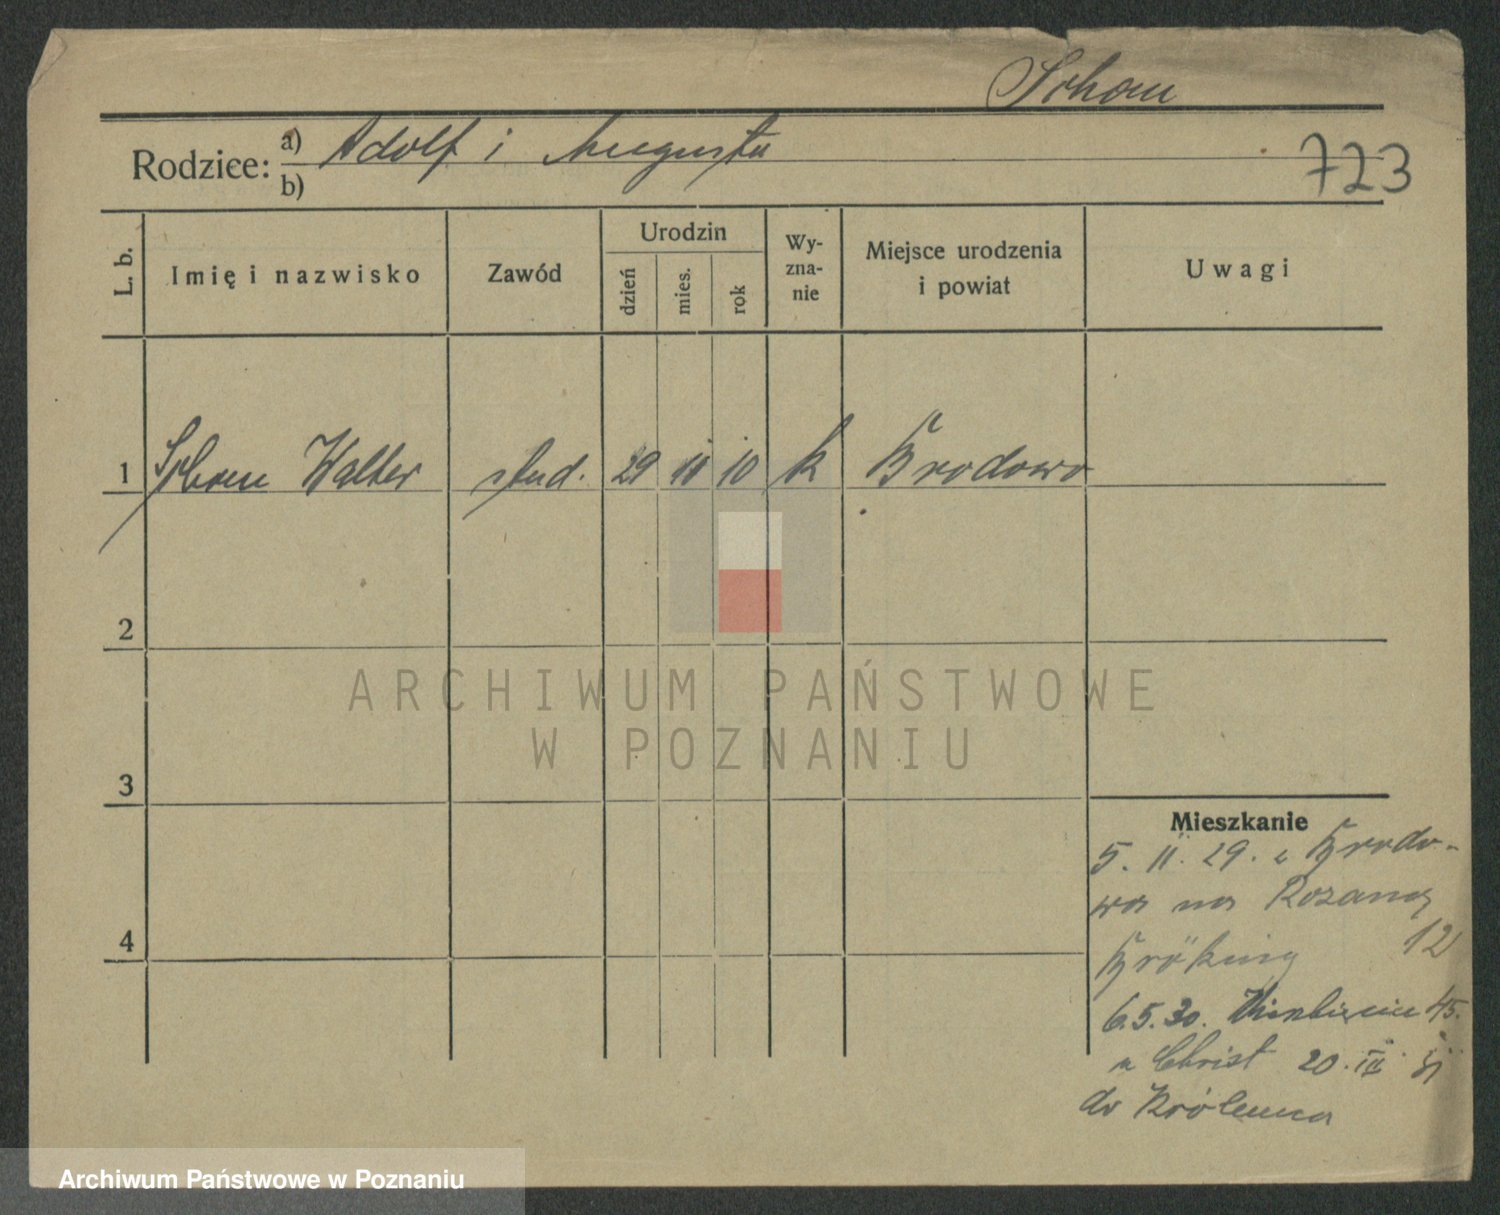 Schön
Rodzice: a) Adolf i Augusta
b)
723
L. b.
Imię i nazwisko
Zawód
Urodzin
dzień
mies.
rok
Wy-
zna-
nie
Miejsce urodzenia
i powiat
Uwagi
1 Walter stud. 29 11 10 k Brodowo
2
3
4
ARCHIWUM PAŃSTWOWE
W POZNANIU
Mieszkanie
5. 11. 29. z Brodo-
wa na
12
6.5.30. 45.
u Christ 20. III
do
Archiwum Państwowe w Poznaniu